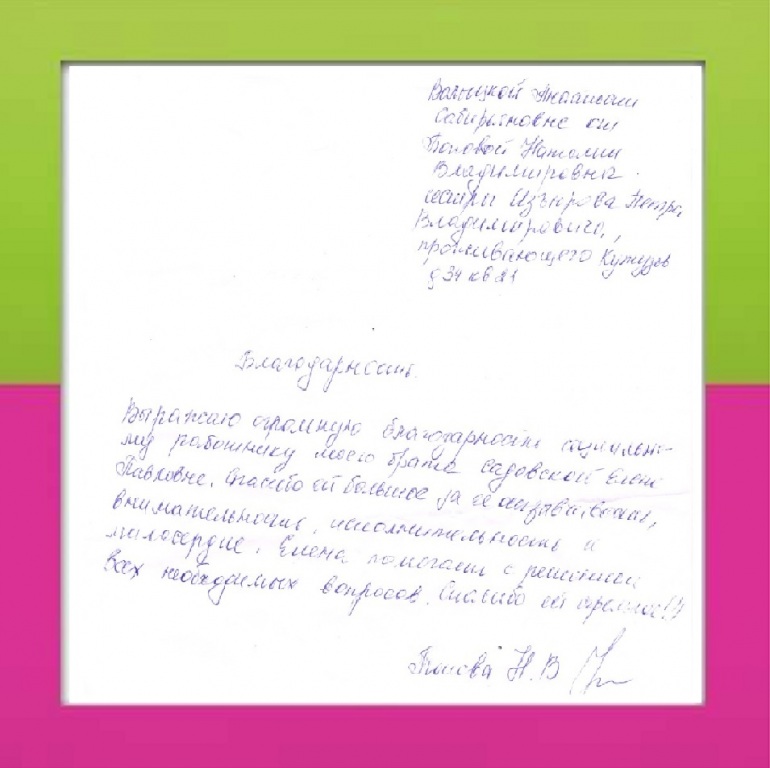 Анастасии
Сабировне от
Поповой Наталии
Владимировна
сестры Петра
Владимировича,
проживающего Кутузов
д 34 кв 21
Благодарность.
Выражаю огромную благодарность социально-
му работнику моего брата Садовской Елене
Павловне. Спасибо ей большое за её
внимательность, исполнительность и
милосердие. Елена помогает с решением
всех необходимых вопросов. Спасибо ей огромное!!!
Попова Н.В